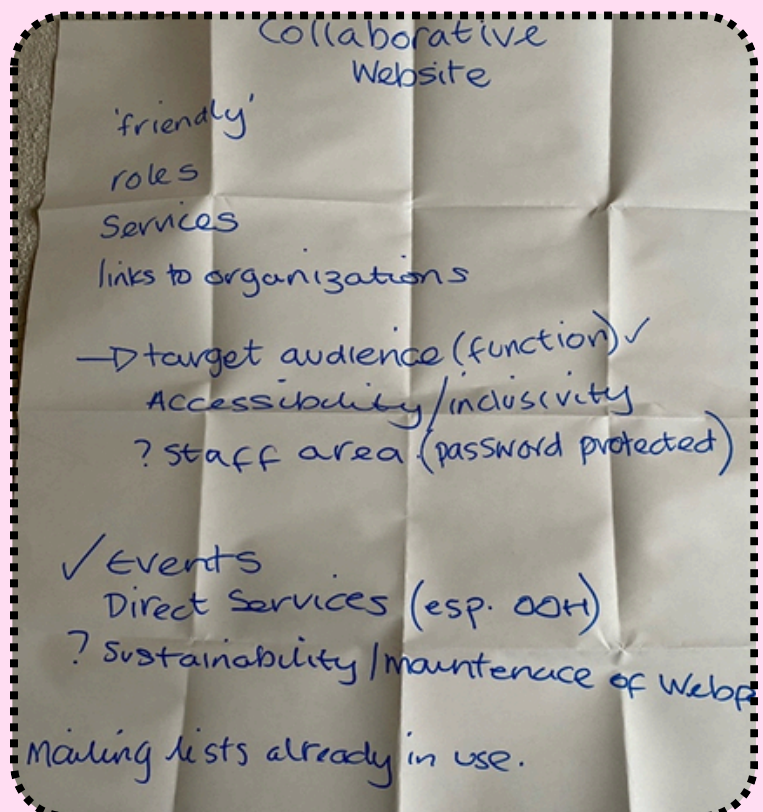 Collaborative
Website
'friendly'
roles
Services
links to organizations
→ target audience (function) ✓
Accessibility/inclusivity
? Staff area (password protected)
✓ Events
Direct Services (esp. OOH)
? Sustainability/maintenace of Webp
Mailing lists already in use.